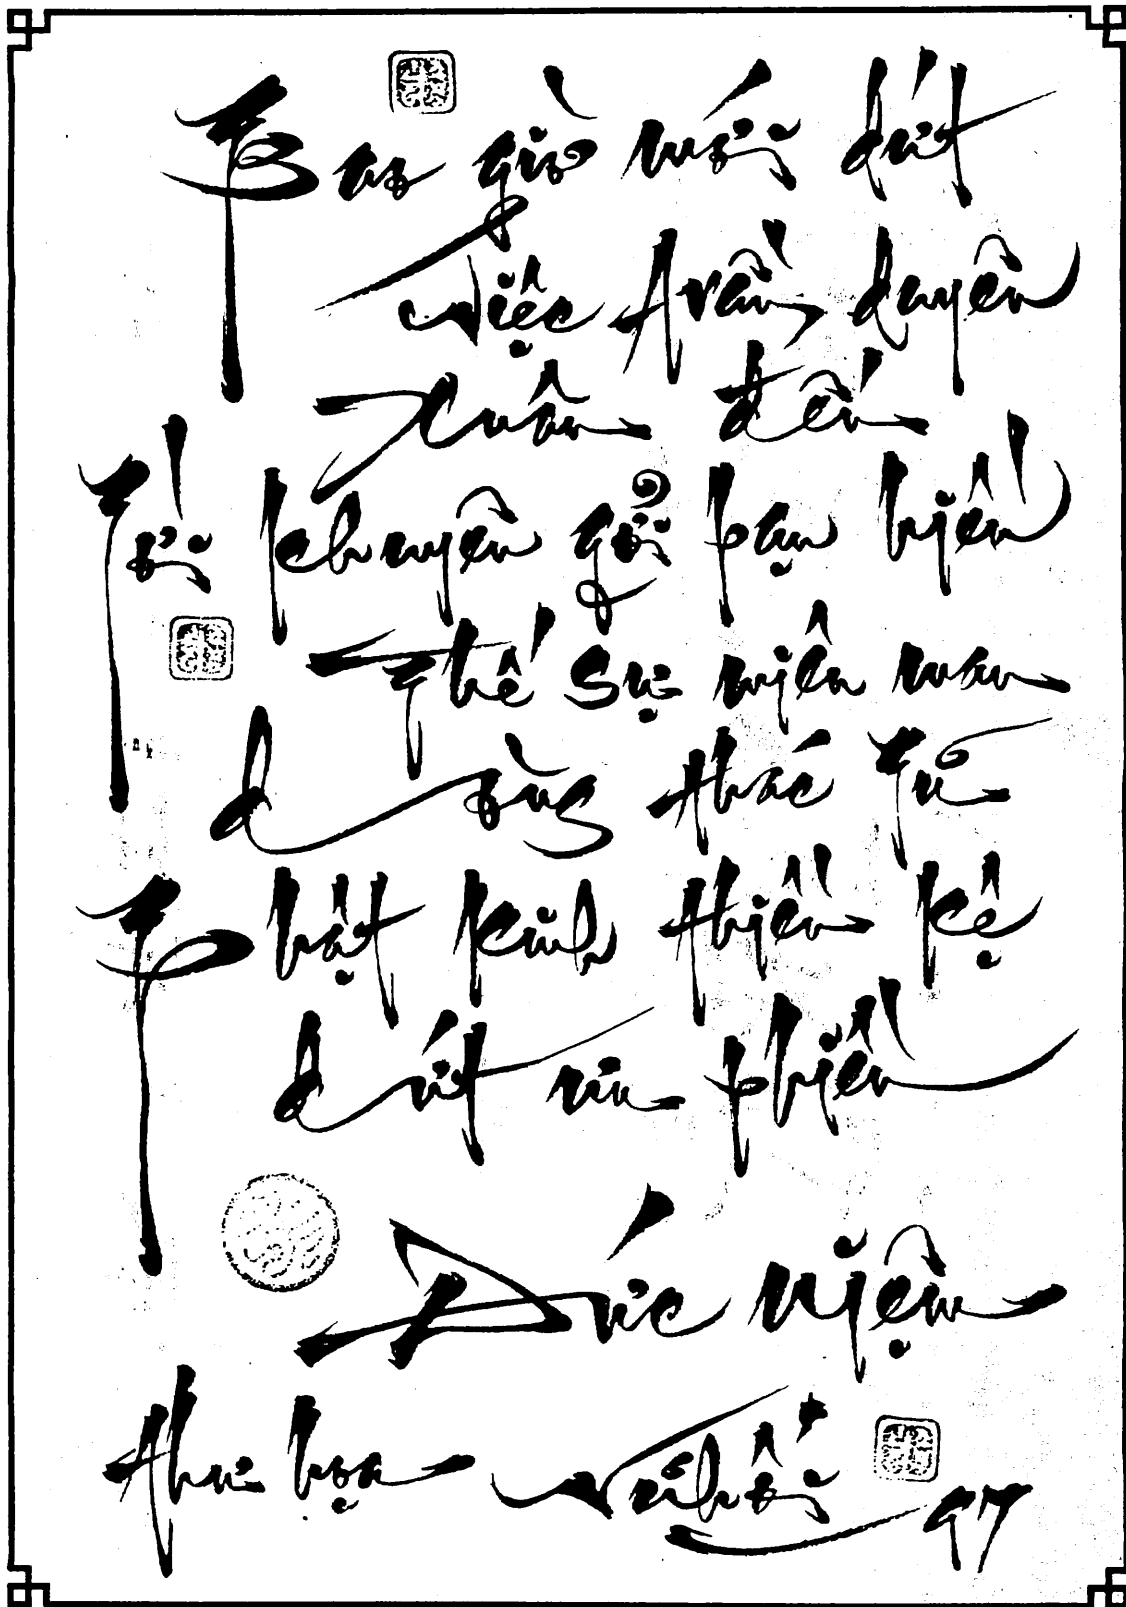 Bao giờ mới dứt
việc trần duyên
Xuân đến
Tôi khuyên gởi bạn hiền
Thế sự miên man
dòng thác lũ
Phật kinh thiền kệ
dứt ưu phiền
Đức Niệm
thư họa Vũ Hối 97